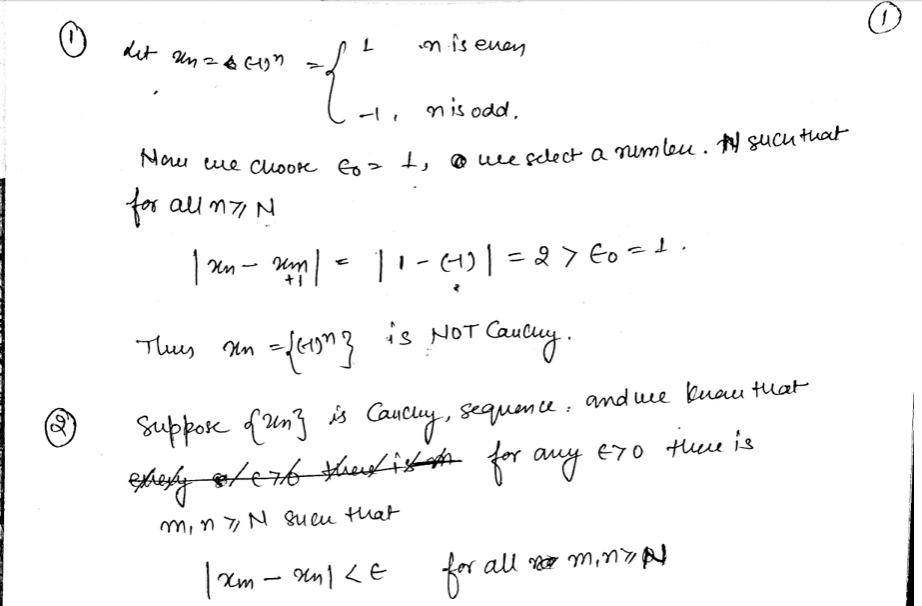 ①
① Let xn = (-1)^n = { 1 n is even
-1, n is odd.
Now we choose ϵ0 = 1, we select a number. N such that
for all n ≥ N
| xn - xn+1 | = | 1 - (-1) | = 2 > ϵ0 = 1.
Thus xn = {(-1)^n} is NOT Cauchy.
② Suppose {xn} is Cauchy, sequence, and we know that
for any ϵ>0 there is
m, n ≥ N such that
| xm - xn | < ϵ for all m, n ≥ N